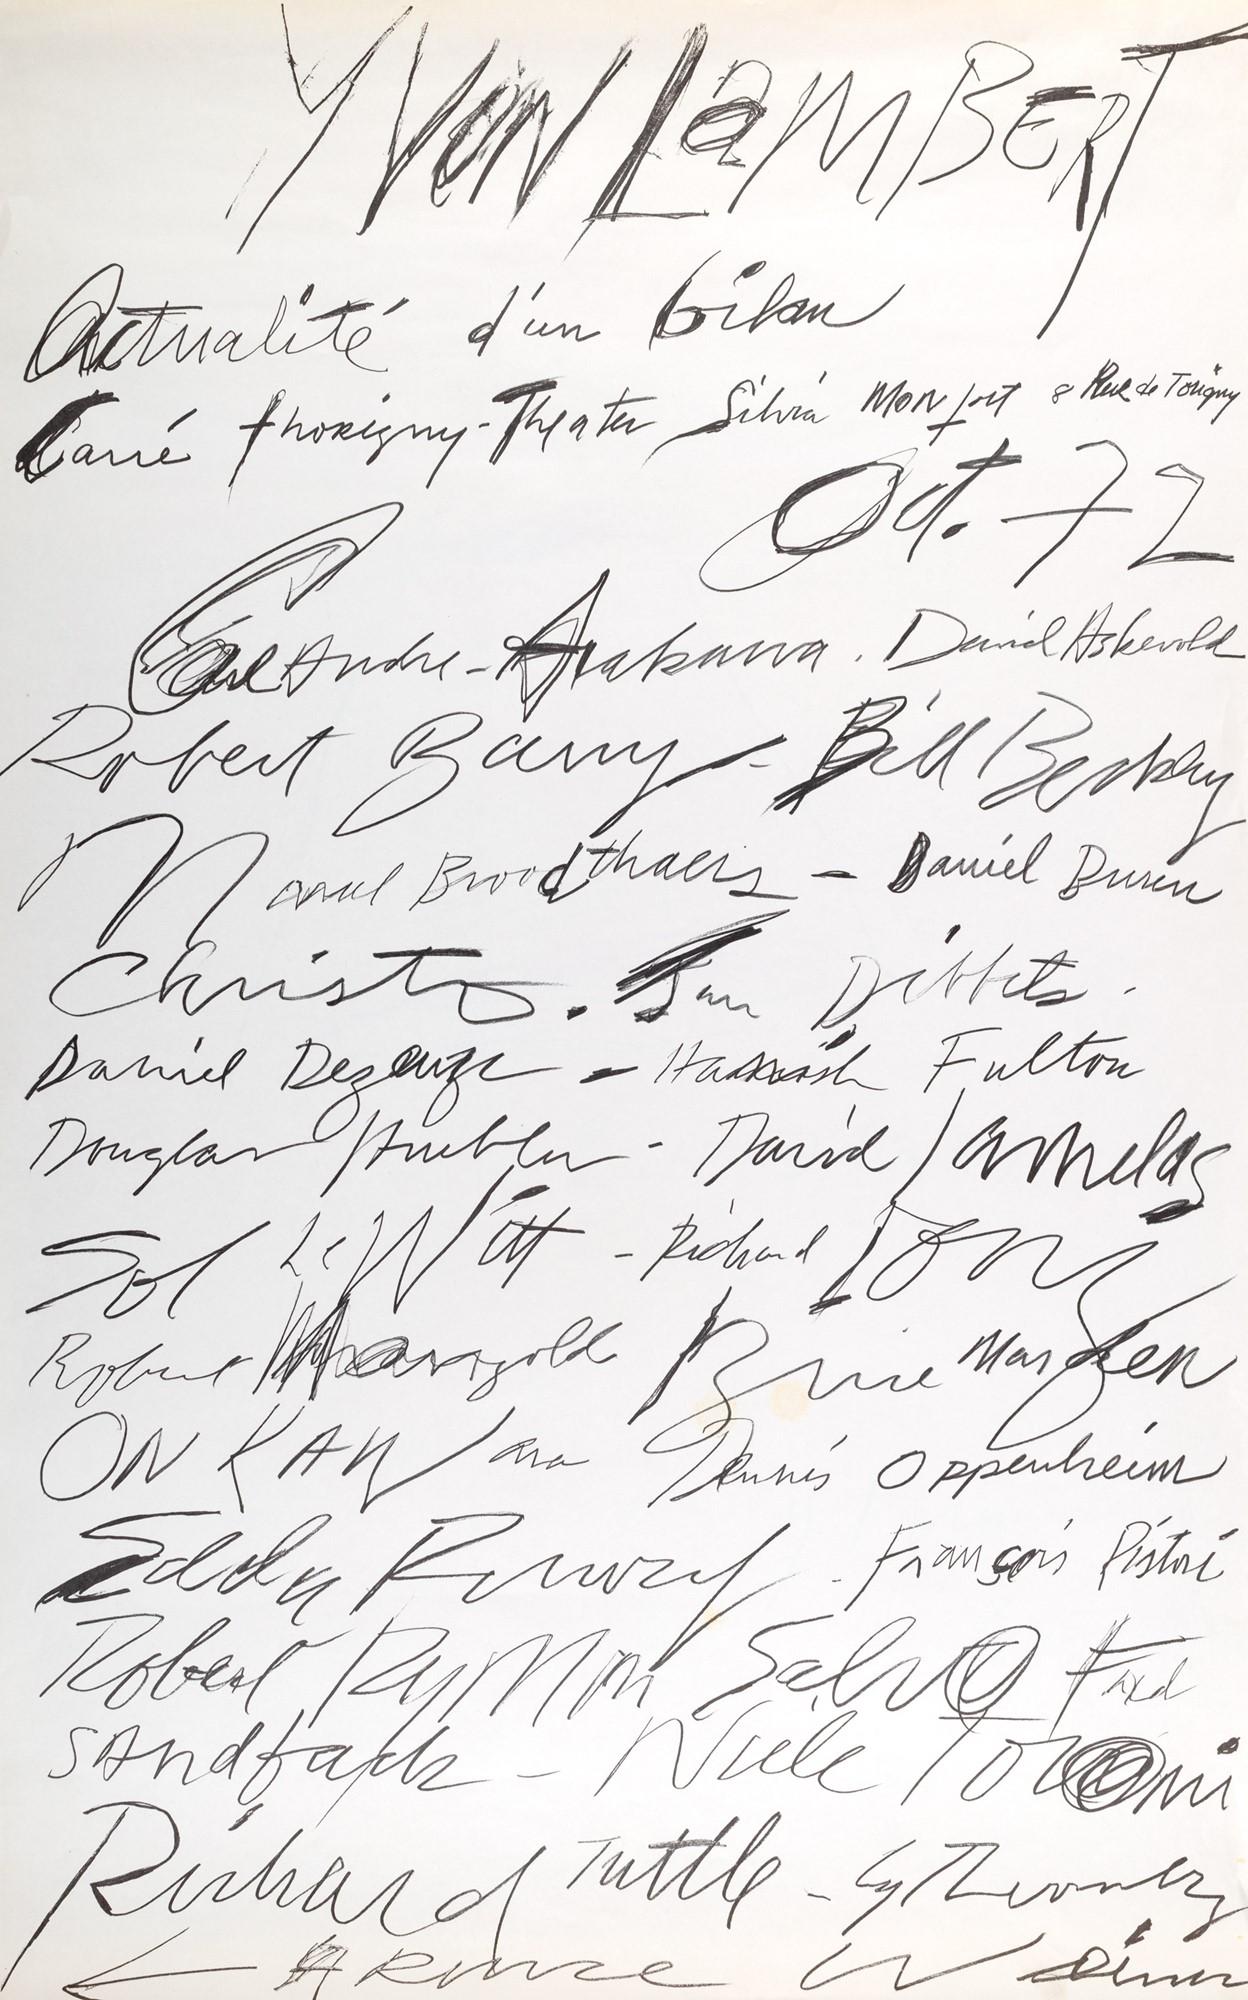 YVON LAMBERT
Actualité d'un bilan
Carré Thorigny-Theater Silvia MONfort 8 Rue de Torigny
Oct. 72
Carl Andre - Arakawa. David Askevold
Robert Barry - Bill Beckley
Marcel Broodthaers - Daniel Buren
Christo. Jan Dibbets.
Daniel Dezeuze - Hamish Fulton
Douglas Huebler - David Lamelas
Sol LeWitt - Richard Long
Robert Mangold Brice Marden
ON KAWara Dennis Oppenheim
Edda Renouf - François Ristori
Robert Ryman Salvo Fred
SAndback - Niele Toroni
Richard Tuttle - Cy Twombly
LARence Weiner